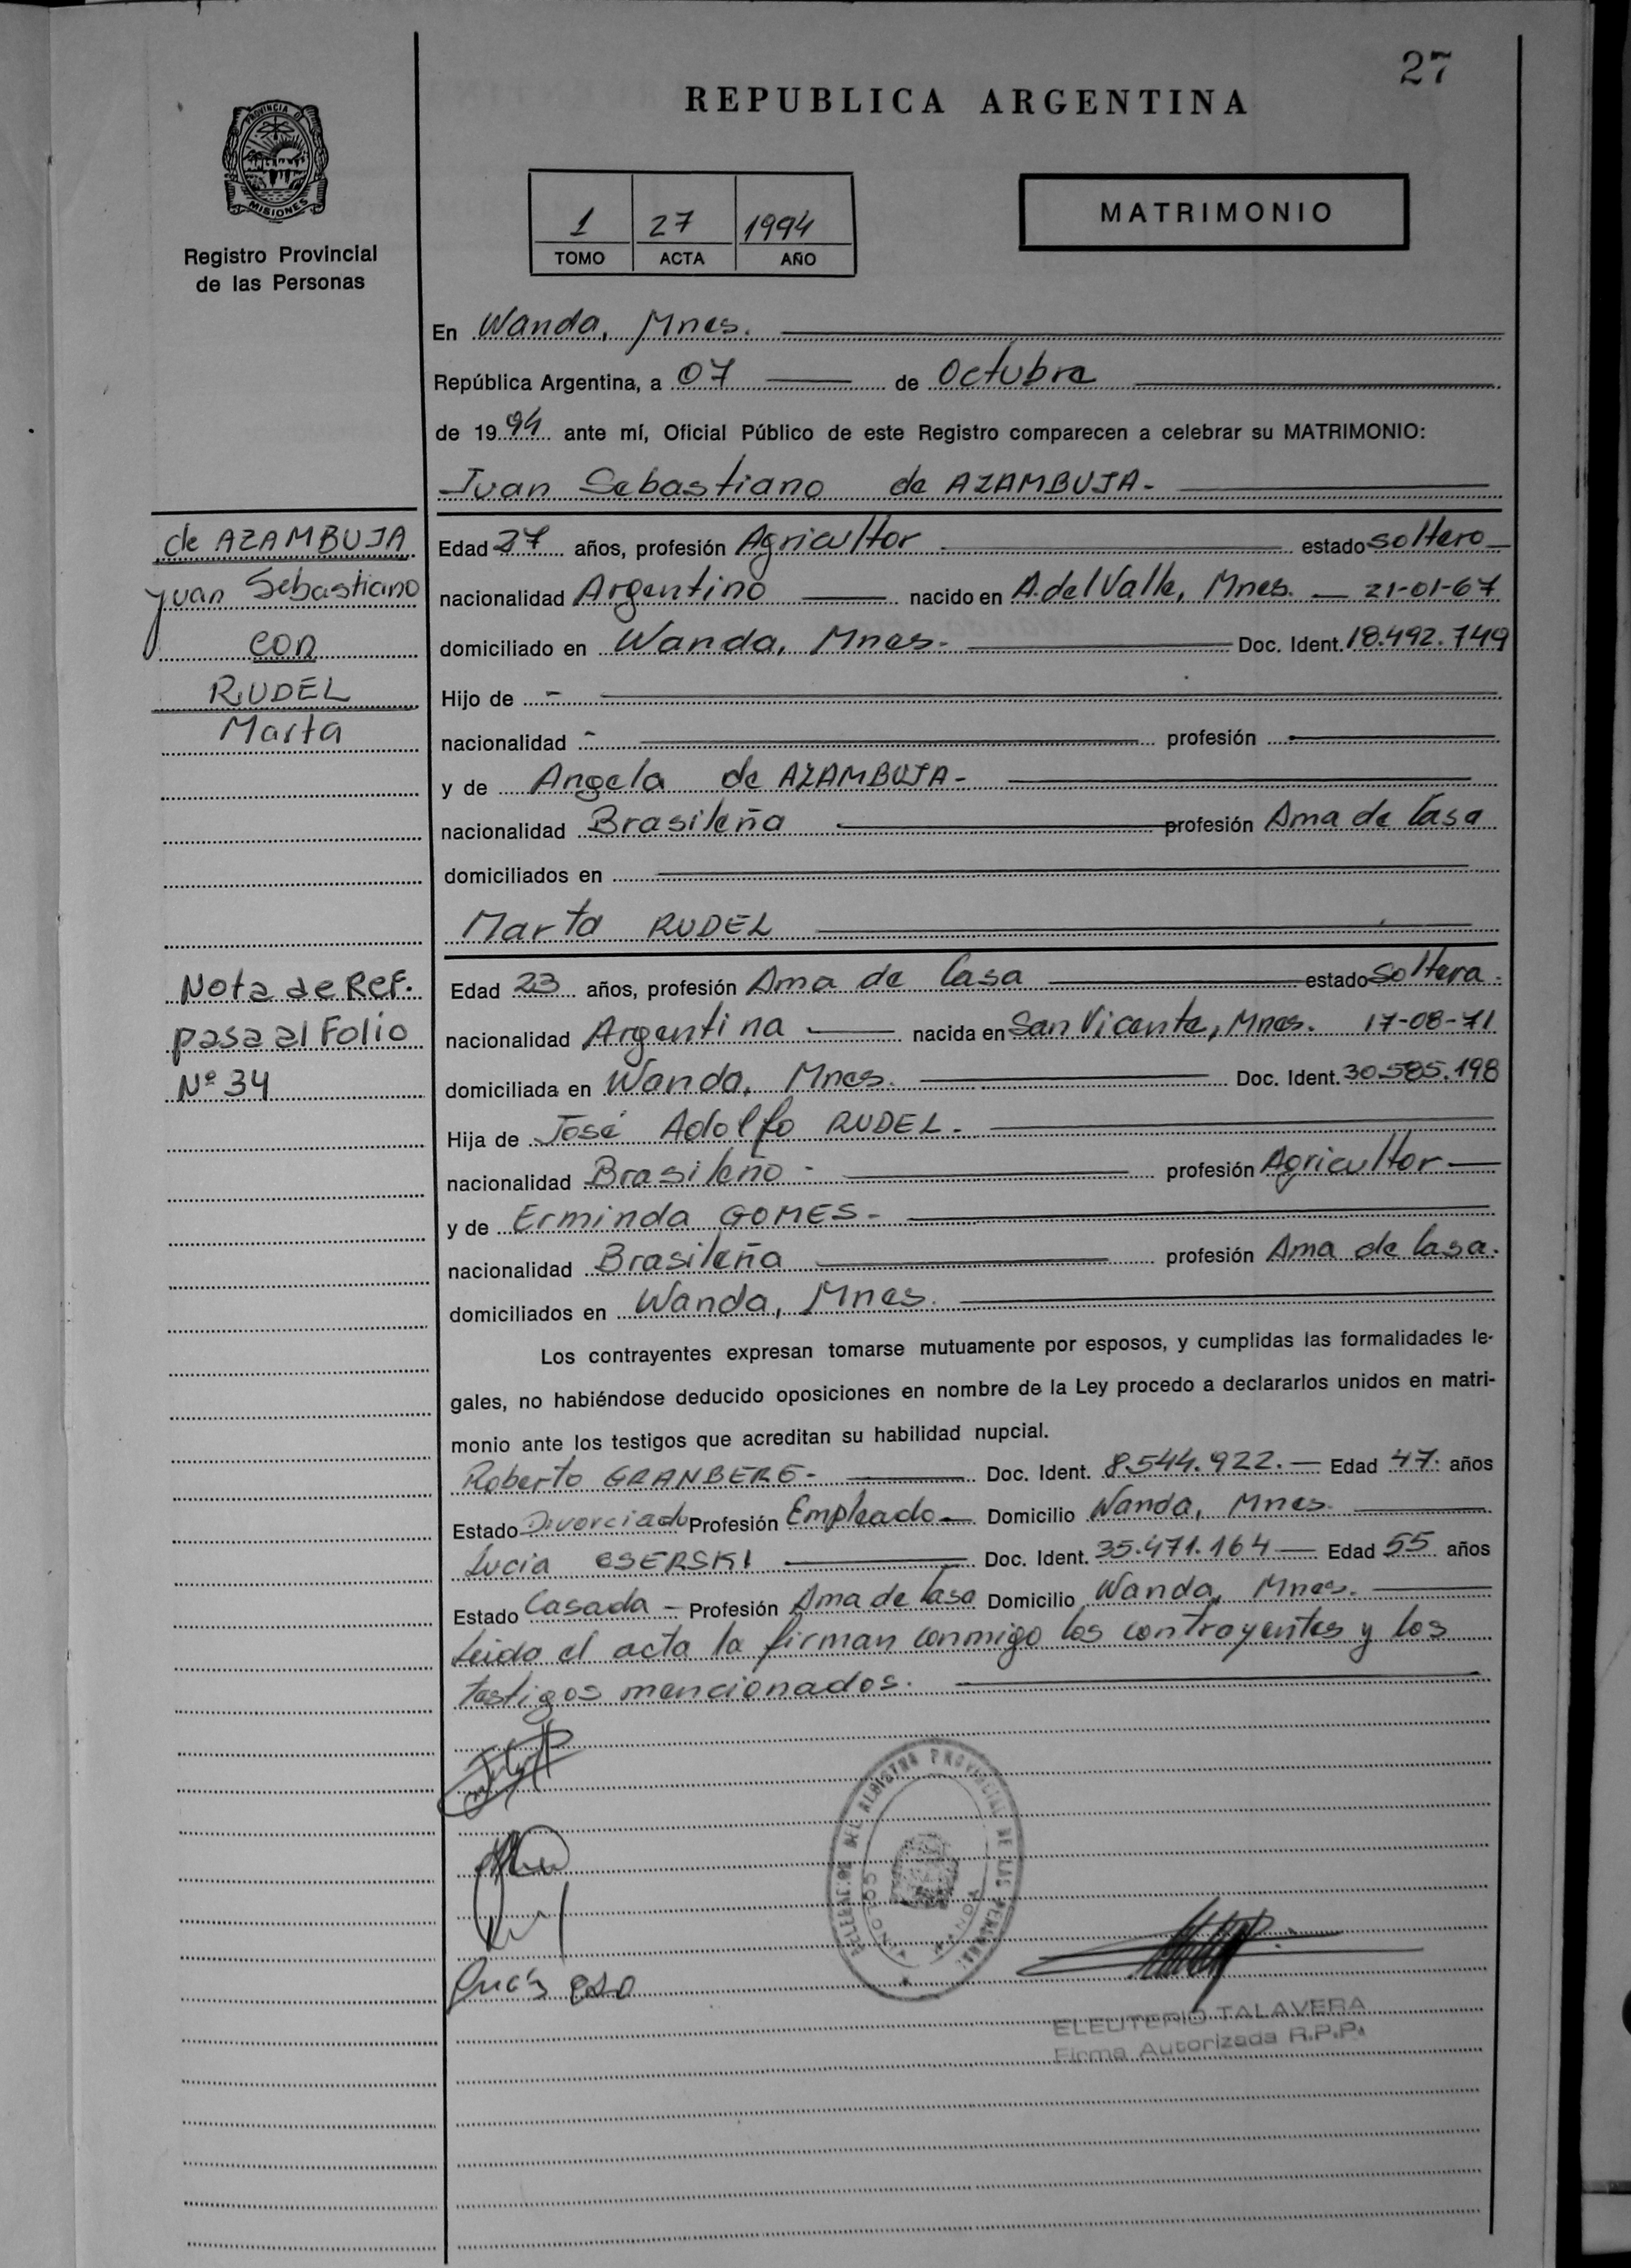 27
REPUBLICA ARGENTINA
PROVINCIA DE
MISIONES
Registro Provincial
de las Personas
1 27 1994
TOMO ACTA AÑO
MATRIMONIO
En Wanda, Mnes.
República Argentina, a 07 de Octubre
de 1994 ante mí, Oficial Público de este Registro comparecen a celebrar su MATRIMONIO:
Juan Sebastiano de AZAMBUJA-
de AZAMBUJA
Juan Sebastiano
con
RUDEL
Marta
Edad 27 años, profesión Agricultor estado soltero
nacionalidad Argentino nacido en A. del Valle, Mnes. 21-01-67
domiciliado en Wanda, Mnes- Doc. Ident. 18.492.749
Hijo de -
nacionalidad - profesión
y de Angela de AZAMBUJA-
nacionalidad Brasileña profesión Ama de Casa
domiciliados en
Marta RUDEL
Nota de Ref.
pasa al Folio
Nº 34
Edad 23 años, profesión Ama de Casa estado Soltera.
nacionalidad Argentina nacida en San Vicente, Mnes. 17-08-71
domiciliada en Wanda, Mnes. Doc. Ident. 30.585.198
Hija de José Adolfo RUDEL.
nacionalidad Brasileño- profesión Agricultor
y de Erminda GOMES-
nacionalidad Brasileña profesión Ama de Casa.
domiciliados en Wanda, Mnes.
Los contrayentes expresan tomarse mutuamente por esposos, y cumplidas las formalidades le-
gales, no habiéndose deducido oposiciones en nombre de la Ley procedo a declararlos unidos en matri-
monio ante los testigos que acreditan su habilidad nupcial.
Roberto GRANBERG- Doc. Ident. 8.544.922.- Edad 47 años
Estado Divorciado Profesión Empleado Domicilio Wanda, Mnes.
Lucia CSERSKI Doc. Ident. 35.471.164 Edad 55 años
Estado Casada - Profesión Ama de Casa Domicilio Wanda, Mnes.
Leida el acta la firman conmigo los contrayentes y los
testigos mencionados.
DEL REGISTRO PROVINCIAL DE LAS PERSONAS
ELEUTERIO TALAVERA
Firma Autorizada R.P.P.